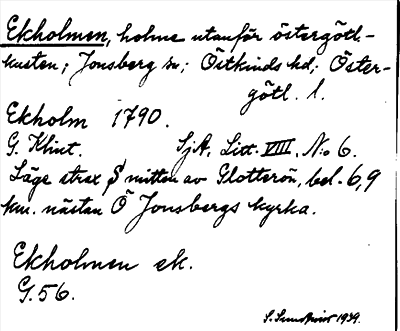 Ekholmen, holme utanför östergötl-
kusten; Jonsberg sn; Östkinds hd; Öster-
götl. l.
Ekholm 1790.
G. Klint. SjA, Litt. VIII, No 6.
Läge strax S mitten av Glotterön, bel. 6,9
km. nästan Ö Jonsbergs kyrka.
Ekholmen ek.
G. 56.
S. Sundqvist 1939.